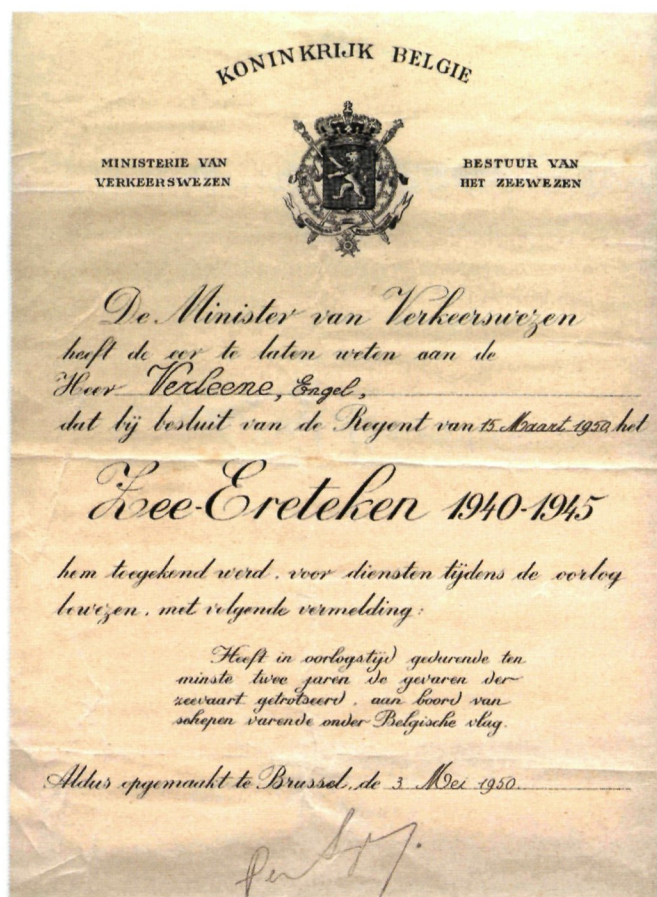 KONINKRIJK BELGIE
MINISTERIE VAN
VERKEERSWEZEN
BESTUUR VAN
HET ZEEWEZEN
De Minister van Verkeerswezen
heeft de eer te laten weten aan de
Heer Verleene, Engel,
dat bij besluit van de Regent van 15 Maart 1950, het
Zee-Ereteken 1940-1945
hem toegekend werd, voor diensten tijdens de oorlog
bewezen, met volgende vermelding:
Heeft in oorlogstijd gedurende ten
minste twee jaren de gevaren der
zeevaart getrotseerd, aan boord van
schepen varende onder Belgische vlag.
Aldus opgemaakt te Brussel, de 3 Mei 1950.